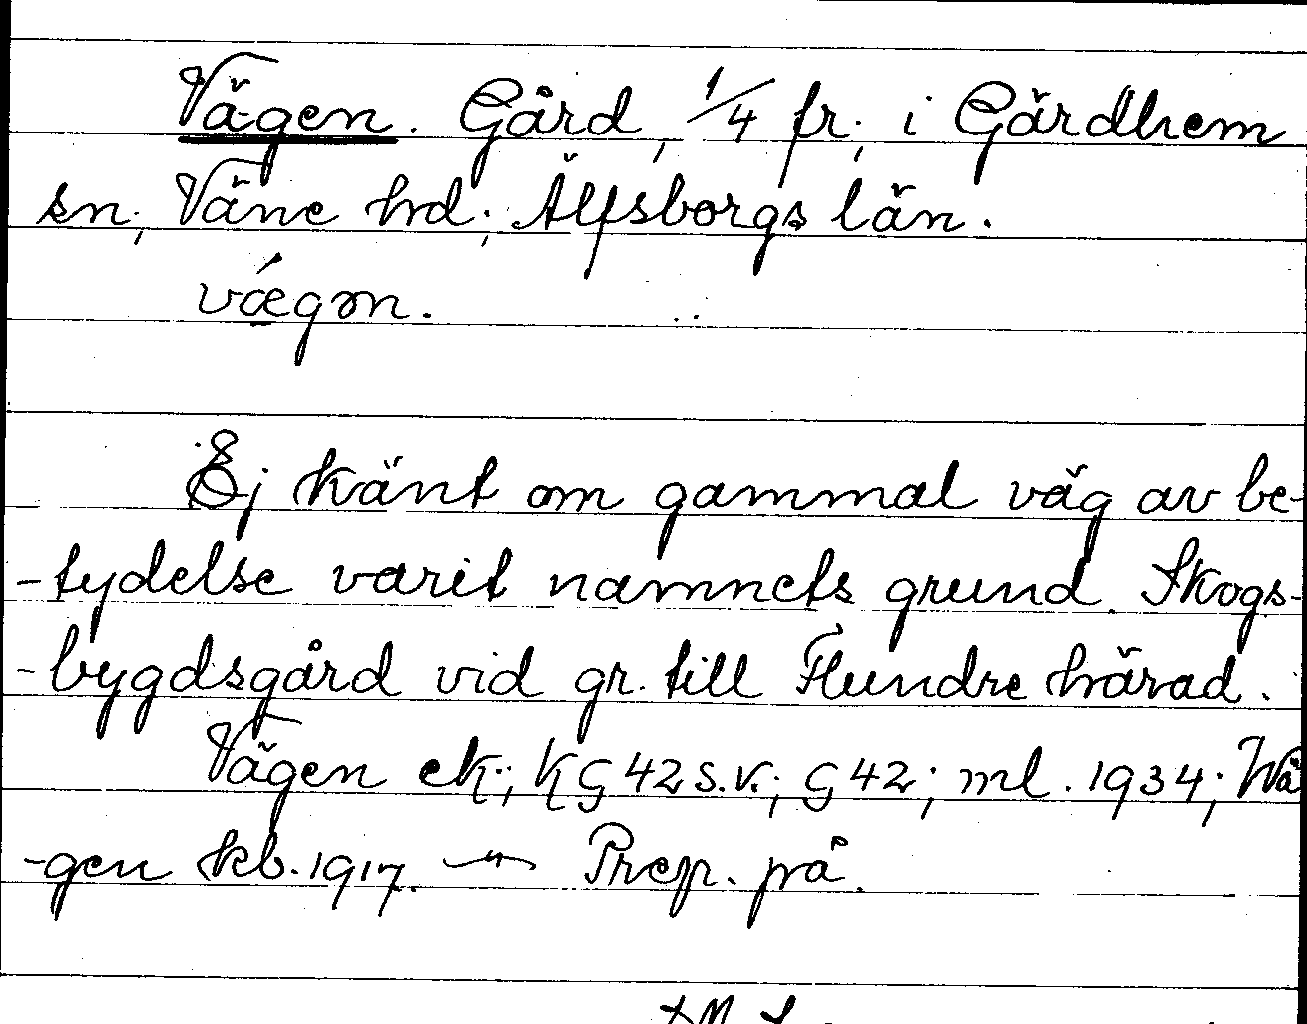 Vägen. Gård, 1/4 fr., i Gärdhem
sn, Väne hd, Älfsborgs län.
vǽgɷn.
Ej känt om gammal väg av be-
-tydelse varit namnets grund. Skogs-
-bygdsgård vid gr. till Flundre härad.
Vägen ek; KG 42 s.v.; G 42; ml. 1934; Wä
-gen kb. 1917. Prep. på.